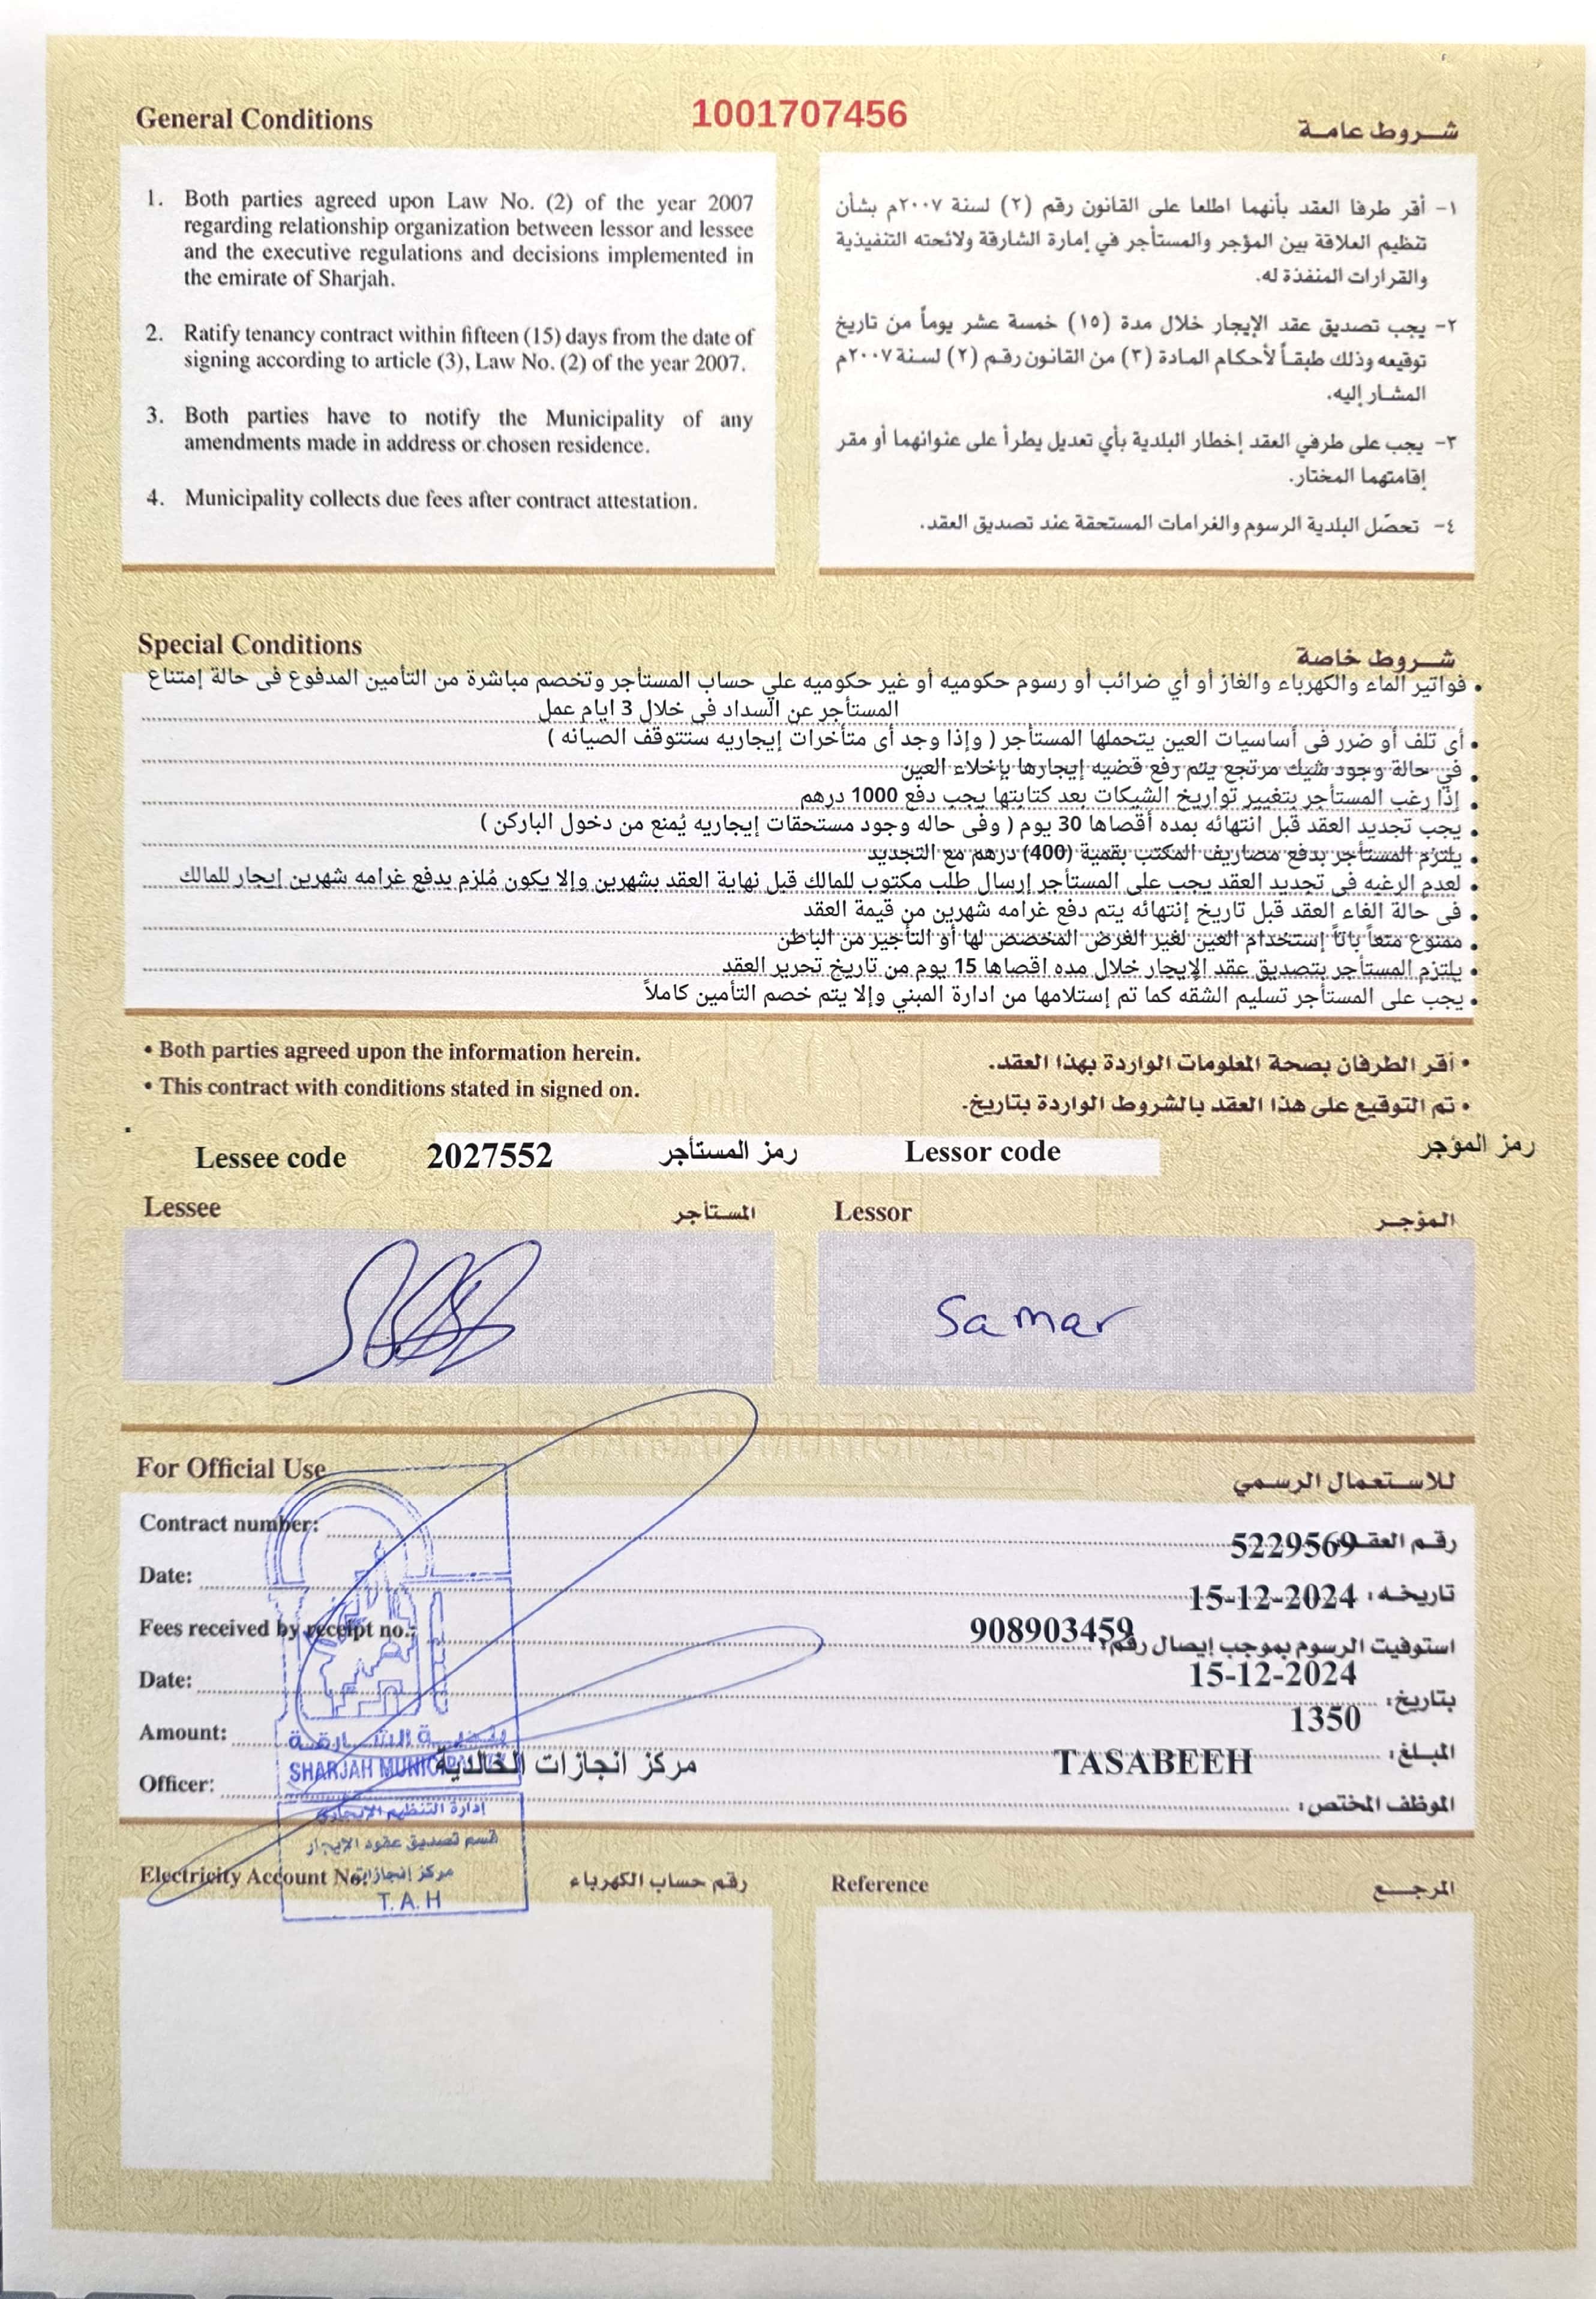 General Conditions
1001707456
شروط عامة
1. Both parties agreed upon Law No. (2) of the year 2007
regarding relationship organization between lessor and lessee
and the executive regulations and decisions implemented in
the emirate of Sharjah.
2. Ratify tenancy contract within fifteen (15) days from the date of
signing according to article (3), Law No. (2) of the year 2007.
3. Both parties have to notify the Municipality of any
amendments made in address or chosen residence.
4. Municipality collects due fees after contract attestation.
١- أقر طرفا العقد بأنهما اطلعا على القانون رقم (٢) لسنة ٢٠٠٧م بشأن
تنظيم العلاقة بين المؤجر والمستأجر في إمارة الشارقة ولائحته التنفيذية
والقرارات المنفذة له.
٢- يجب تصديق عقد الإيجار خلال مدة (١٥) خمسة عشر يوماً من تاريخ
توقيعه وذلك طبقاً لأحكام المادة (٣) من القانون رقم (٢) لسنة ٢٠٠٧م
المشار إليه.
٣- يجب على طرفي العقد إخطار البلدية بأي تعديل يطرأ على عنوانهما أو مقر
إقامتهما المختار.
٤- تحصّل البلدية الرسوم والغرامات المستحقة عند تصديق العقد.
Special Conditions
شروط خاصة
• فواتير الماء والكهرباء والغاز أو أي ضرائب أو رسوم حكوميه أو غير حكوميه علي حساب المستأجر وتخصم مباشرة من التأمين المدفوع فى حالة إمتناع
المستأجر عن السداد فى خلال 3 ايام عمل
• أى تلف أو ضرر فى أساسيات العين يتحملها المستأجر ( وإذا وجد أى متأخرات إيجاريه ستتوقف الصيانه )
• في حالة وجود شيك مرتجع يتم رفع قضيه إيجارها بإخلاء العين
• إذا رغب المستأجر بتغيير تواريخ الشيكات بعد كتابتها يجب دفع 1000 درهم
• يجب تجديد العقد قبل انتهائه بمده أقصاها 30 يوم ( وفى حاله وجود مستحقات إيجاريه يُمنع من دخول الباركن )
• يلتزم المستأجر بدفع مصاريف المكتب بقمية (400) درهم مع التجديد
• لعدم الرغبه فى تجديد العقد يجب على المستأجر إرسال طلب مكتوب للمالك قبل نهاية العقد بشهرين وإلا يكون مُلزم بدفع غرامه شهرين إيجار للمالك
• فى حالة الغاء العقد قبل تاريخ إنتهائه يتم دفع غرامه شهرين من قيمة العقد
• ممنوع متعاً باتاً إستخدام العين لغير الغرض المخصص لها أو التأجير من الباطن
• يلتزم المستأجر بتصديق عقد الإيجار خلال مده اقصاها 15 يوم من تاريخ تحرير العقد
• يجب على المستأجر تسليم الشقه كما تم إستلامها من ادارة المبني وإلا يتم خصم التأمين كاملاً
• Both parties agreed upon the information herein.
• This contract with conditions stated in signed on.
• أقر الطرفان بصحة المعلومات الواردة بهذا العقد.
• تم التوقيع على هذا العقد بالشروط الواردة بتاريخ.
Lessee code 2027552 رمز المستأجر
Lessor code رمز المؤجر
Lessee المستأجر
Lessor المؤجر
Samar
For Official Use
للاستعمال الرسمي
Contract number: 5229569 رقم العقد
Date: 15-12-2024 تاريخه:
Fees received by receipt no.: 908903459 استوفيت الرسوم بموجب إيصال رقم:
Date: 15-12-2024 بتاريخ:
Amount: 1350 المبلغ:
Officer: مركز انجازات الخالدية TASABEEH الموظف المختص:
بلدية الشارقة
SHARJAH MUNICIPALITY
إدارة التنظيم الإيجاري
قسم تصديق عقود الايجار
مركز إنجازات
T.A.H
Electricity Account No. رقم حساب الكهرباء
Reference المرجع